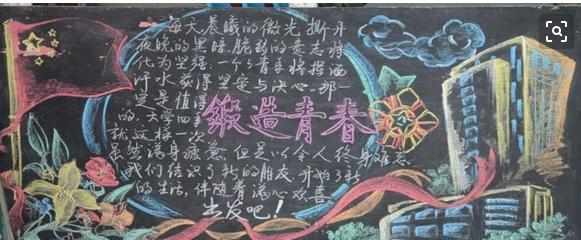 每天晨曦的微光撕开
夜晚的黑暗脆弱的意志将
化为坚强.一个个青年将挥洒
汗水获得坚定与决心.那一
定是值得
的.大学四年
就这样一次
锻造青春
虽然浑身疲惫.但是以令人终身难忘
我们结识了新的朋友.开始了新
的生活,伴随着满心欢喜
出发吧!